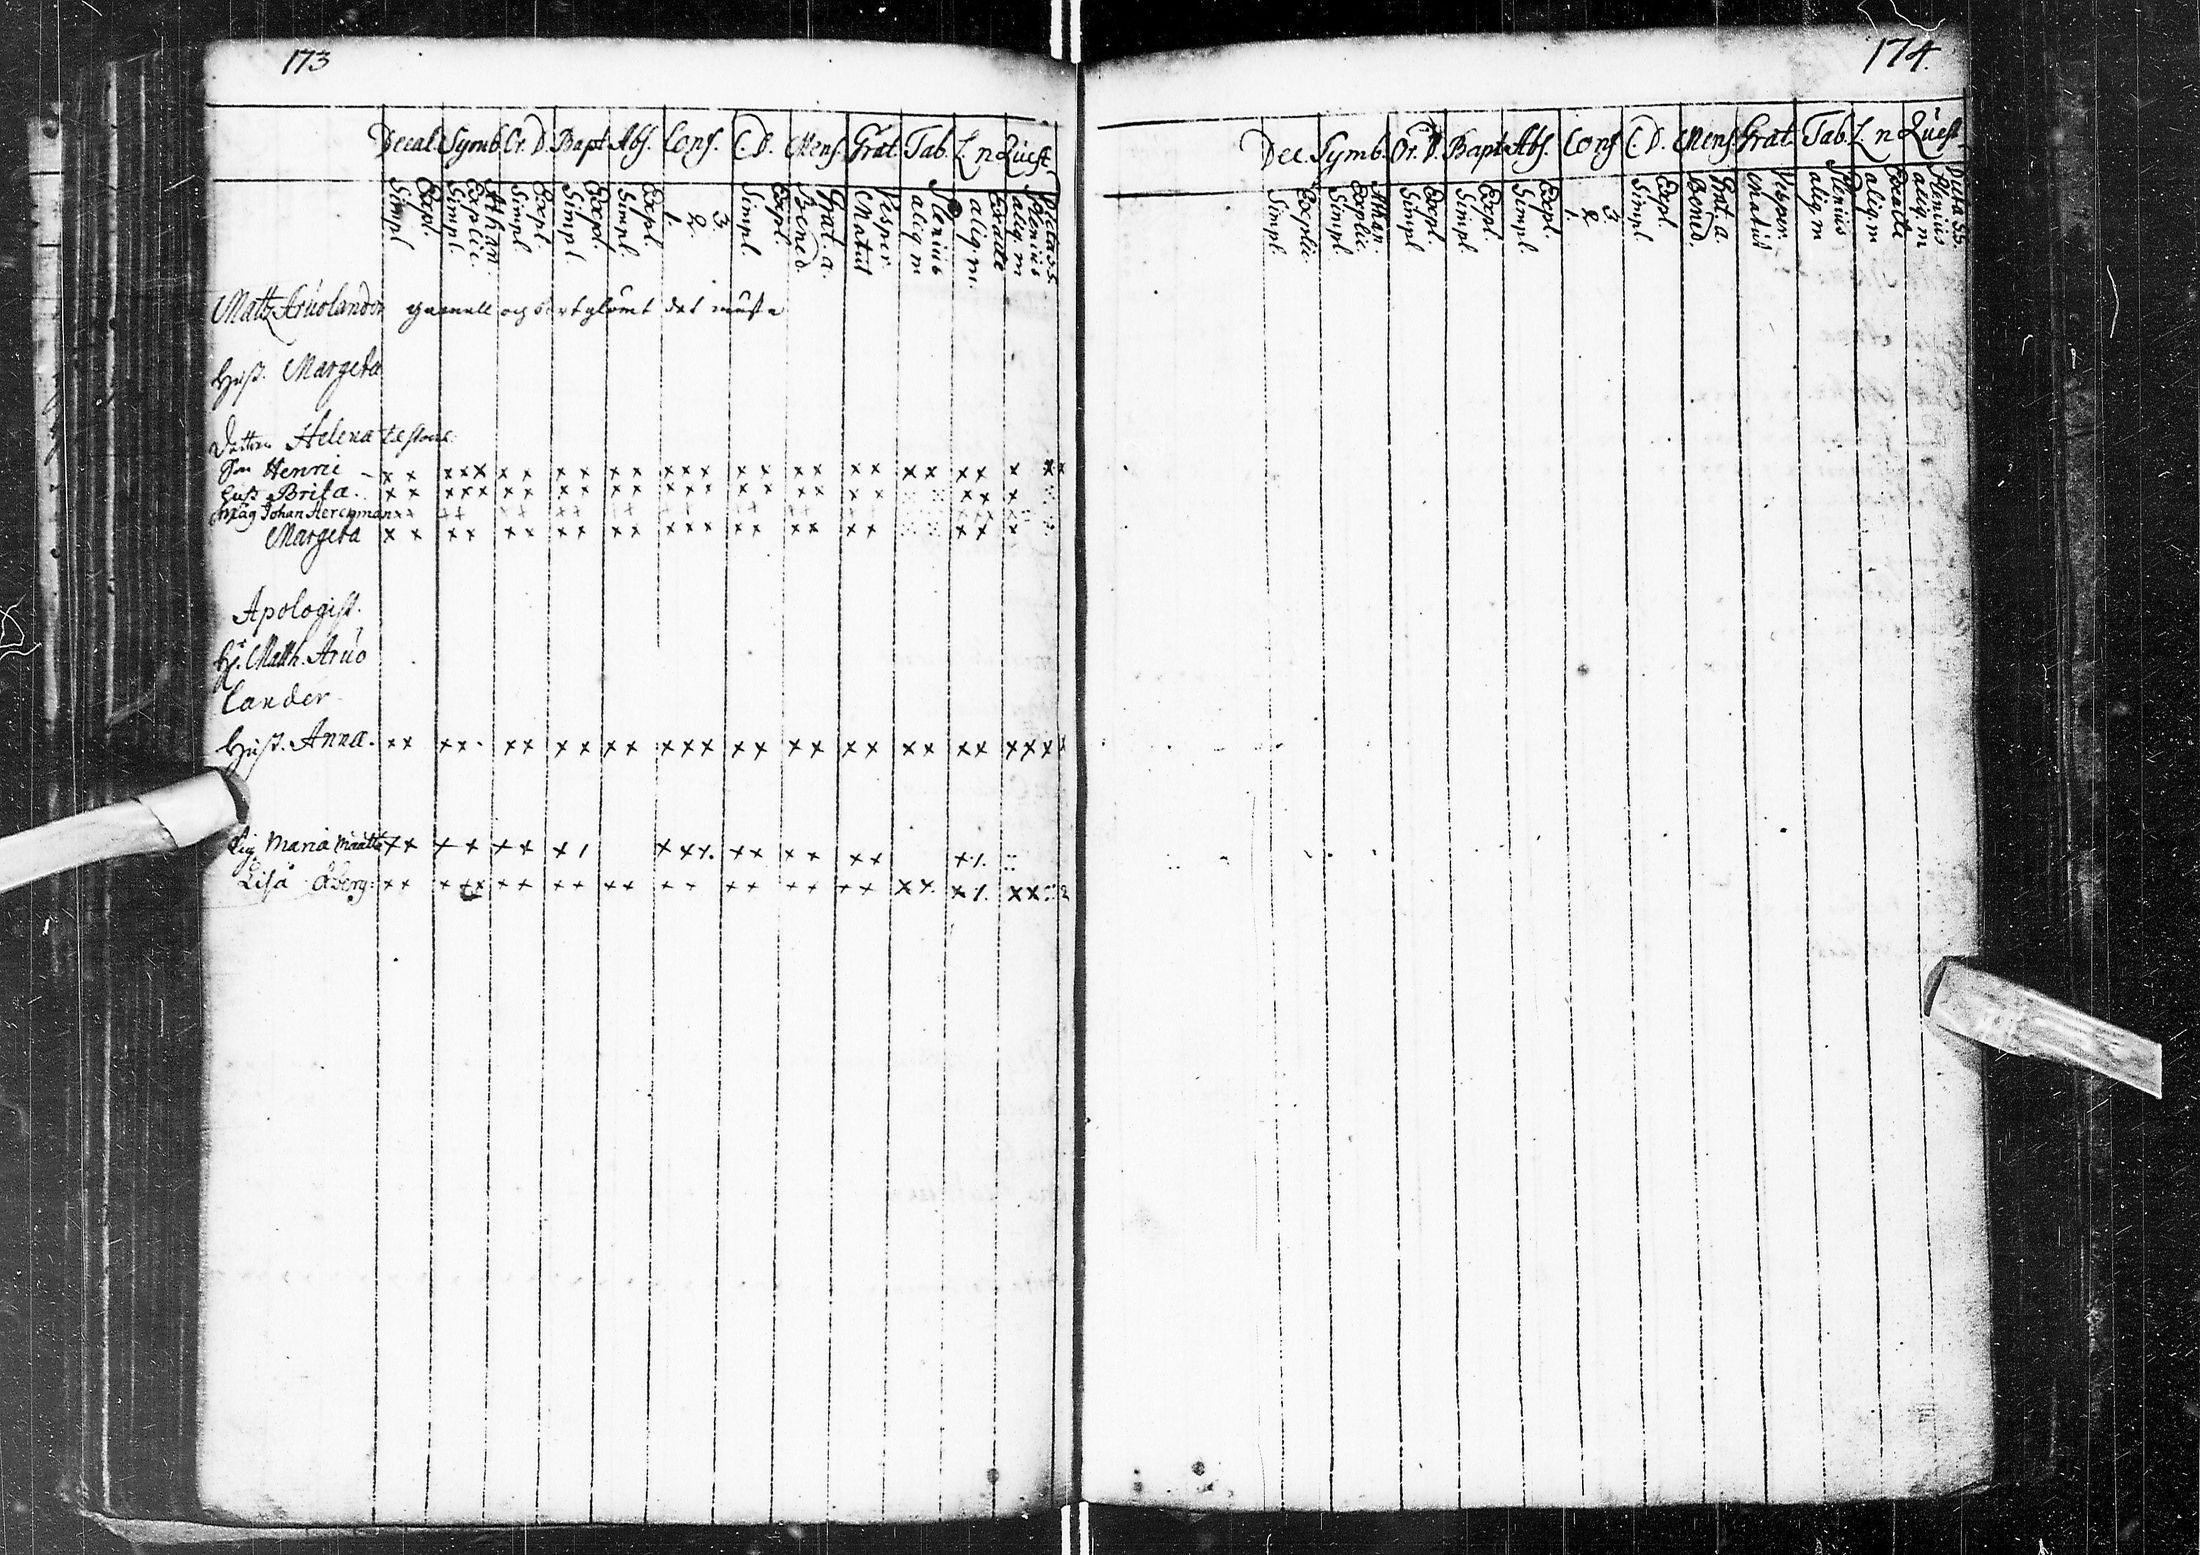 173
Decal. Symb. Or. D. Bapt. Abs. Conf. C. D. Mens. Grat. Tab. L. n Quest.
Simpl. Expl. Simpl. Explic. Athan. Simpl. Expl. Simpl. Expl. Simpl. Expl. 1. 2. 3 Simpl. Expl. Bened. Grat. a. Matut Vesper aliq m Plenius aliq m. Exacte aliq. m Plenius Dicta SS
Mattz Aruolander gammall och bortglömt det mästa
Hust. Margeta
Dottren Helena
Son Henric x x x x x x x x x x x x x x x x x x x x x x x x x x x
Hust Brita. x x x x x x x x x x x x x x x x x x x x x x
Måg Johan
Margeta x x x x x x x x x x x x x x x x x x x x x x
Apologist.
Hr. Matth. Aruo
lander
Hust. Anna. x x x x x x x x x x x x x x x x x x x x x x x x x x x
Pig Maria Maatta x x x x x x x / x x x x x x x x x
Lisa Åberg x x x x x x x x x x x x x x x x x x x
174.
Dec. Symb. Or. D. Bapt. Abs. Conf C. D. Mens. Grat. Tab. L. n Quest
Simpl. Explic. Simpl. Explic. Athan. Simpl. Expl. Simpl. Expl. Simpl. Expl. 1. 2 3. Simpl. Expl. Bened. Grat. a. Matut Vesper. aliq. m Plenius aliq. m Exacte aliq. m Plenius Dicta SS.